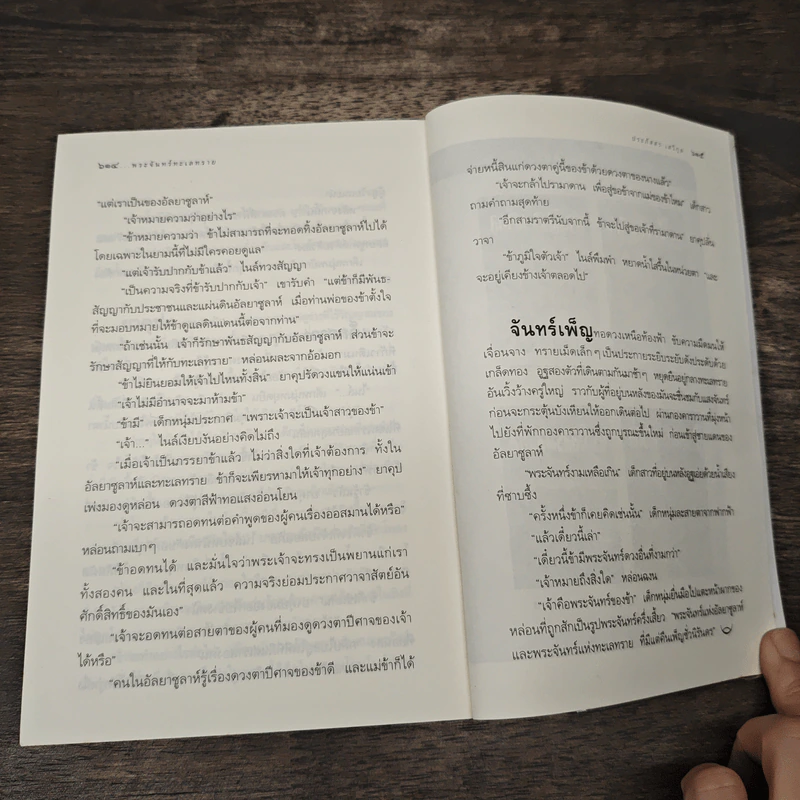 ๖๑๔ พระจันทร์ทะเลทราย
"แต่เราเป็นของอัลยาซูลาห์"
"เจ้าหมายความว่าอย่างไร"
"ข้าหมายความว่า ข้าไม่สามารถที่จะทอดทิ้งอัลยาซูลาห์ไปได้
โดยเฉพาะในยามนี้ที่ไม่มีใครคอยดูแล"
"แต่เจ้ารับปากกับข้าแล้ว" ไนล์ทวงสัญญา
"เป็นความจริงที่ข้ารับปากกับเจ้า" เขารับคำ "แต่ข้าก็มีพันธ-
สัญญากับประชาชนและแผ่นดินอัลยาซูลาห์ เมื่อท่านพ่อของข้าตั้งใจ
ที่จะมอบหมายให้ข้าดูแลดินแดนนี้ต่อจากท่าน"
"ถ้าเช่นนั้น เจ้าก็รักษาพันธสัญญากับอัลยาซูลาห์ ส่วนข้าจะ
รักษาสัญญาที่ให้กับทะเลทราย" หล่อนผละจากอ้อมอก
"ข้าไม่ยินยอมให้เจ้าไปไหนทั้งสิ้น" ยาคุปรัดวงแขนให้แน่นเข้า
"เจ้าไม่มีอำนาจจะมาห้ามข้า"
"ข้ามี" เด็กหนุ่มประกาศ "เพราะเจ้าจะเป็นเจ้าสาวของข้า"
"เจ้า..." ไนล์เงียบงันอย่างคิดไม่ถึง
"เมื่อเจ้าเป็นภรรยาข้าแล้ว ไม่ว่าสิ่งใดที่เจ้าต้องการ ทั้งใน
อัลยาซูลาห์และทะเลทราย ข้าก็จะเพียรหามาให้เจ้าทุกอย่าง" ยาคุป
เพ่งมองดูหล่อน ดวงตาสีฟ้าทอแสงอ่อนโยน
"เจ้าจะสามารถอดทนต่อคำพูดของผู้คนเรื่องออสมานได้หรือ"
หล่อนถามเบาๆ
"ข้าอดทนได้ และมั่นใจว่าพระเจ้าจะทรงเป็นพยานแก่เรา
ทั้งสองคน และในที่สุดแล้ว ความจริงย่อมประกาศวาจาสัตย์อัน
ศักดิ์สิทธิ์ของมันเอง"
"เจ้าจะอดทนต่อสายตาของผู้คนที่มองดูดวงตาปีศาจของเจ้า
ได้หรือ"
"คนในอัลยาซูลาห์รู้เรื่องดวงตาปีศาจของข้าดี และแม่ข้าก็ได้
๖๑๕
จ่ายหนี้สินแก่ดวงตาคู่นี้ของข้าด้วยดวงตาของนางแล้ว"
"เจ้าจะกล้าไปรามาดาน เพื่อสู่ขอข้าจากแม่ของข้าไหม" เด็กสาว
ถามคำถามสุดท้าย
"อีกสามราตรีนับจากนี้ ข้าจะไปสู่ขอเจ้าที่รามาดาน" ยาคุปลั่น
วาจา
"ข้าภูมิใจตัวเจ้า" ไนล์พึมพำ หยาดน้ำใสรื้นในหน่วยตา "และ
จะอยู่เคียงข้างเจ้าตลอดไป"
จันทร์เพ็ญทอดวงเหนือท้องฟ้า ขับความมืดมนให้
เจื่อนจาง ทรายเม็ดเล็กๆ เป็นประกายระยิบระยับดังประดับด้วย
เกล็ดทอง อูฐสองตัวที่เดินตามกันมาช้าๆ หยุดยืนอยู่กลางทะเลทราย
อันเวิ้งว้างครู่ใหญ่ ราวกับผู้ที่อยู่บนหลังของมันจะชื่นชมกับแสงจันทร์
ก่อนจะกระตุ้นบังเหียนให้ออกเดินต่อไป ผ่านกองคาราวานที่มุ่งหน้า
ไปยังที่พักกองคาราวานซึ่งถูกบูรณะขึ้นใหม่ ก่อนเข้าสู่ชายแดนของ
อัลยาซูลาห์
"พระจันทร์งามเหลือเกิน" เด็กสาวที่อยู่บนหลังอูฐเอ่ยด้วยน้ำเสียง
ที่ซาบซึ้ง
"ครั้งหนึ่งข้าก็เคยคิดเช่นนั้น" เด็กหนุ่มละสายตาจากฟากฟ้า
"แล้วเดี๋ยวนี้เล่า"
"เดี๋ยวนี้ข้ามีพระจันทร์ดวงอื่นที่งามกว่า"
"เจ้าหมายถึงสิ่งใด" หล่อนฉงน
"เจ้าคือพระจันทร์ของข้า" เด็กหนุ่มยื่นมือไปแตะหน้าผากของ
หล่อนที่ถูกสักเป็นรูปพระจันทร์ครึ่งเสี้ยว "พระจันทร์แห่งอัลยาซูลาห์
และพระจันทร์แห่งทะเลทราย ที่มีแต่คืนเพ็ญชั่วนิรันดร"